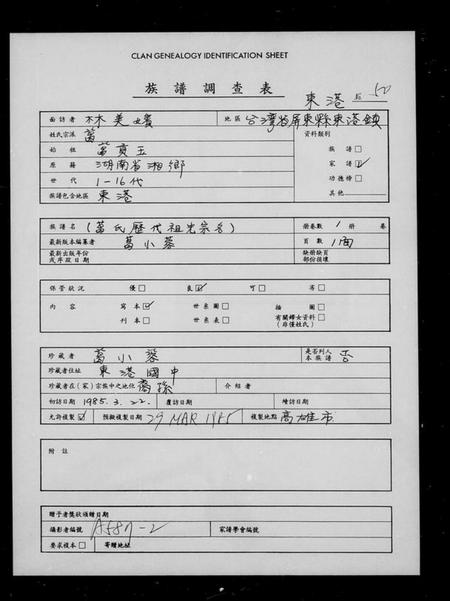 CLAN GENEALOGY IDENTIFICATION SHEET
族譜調查表
東港 50
面訪者 林美 地區 台灣省屏東縣東港鎮
姓氏宗派 葛 資料類別
始祖 葛亮玉 族譜□
原籍 湖南省湘鄉 家譜☑
世代 1-16代 功德榜□
族譜包含地區 東港 其他
族譜名 (葛氏歷代祖先宗名) 冊卷數 1 冊 卷
最新版本編纂者 葛小蓉 頁數 1面
最新出版年份或序跋日期 缺冊缺頁部份損壞
保管狀況 優□ 良☑ 可□ 劣□
內容 寫本☑ 世系圖□ 插圖□
刊本□ 世系表□ 有關婦女資料□(非僅姓氏)
珍藏者 葛小蓉 是否列入本族譜 否
珍藏者住址 東港國中
珍藏者在(家)宗族中之地位 裔孫 介紹者
初訪日期 1985.3.22. 覆訪日期 續訪日期
允許複製☑ 預擬複製日期 29 MAR 1985 複製地點 高雄市
附註
贈予者獎狀頒贈日期
攝影者編號 A587-2 家譜學會編號
要求複本□ 寄贈地址